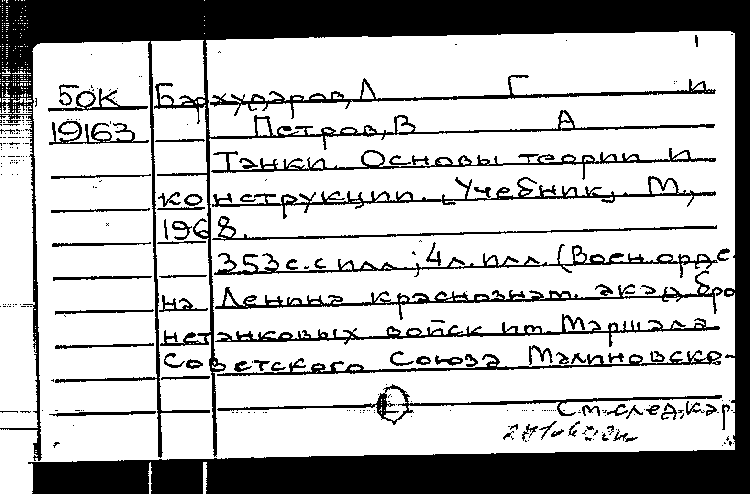 50К Бархударов, Л Г и
19163 Петров, В А
Танки. Основы теории и
конструкции. [Учебник]. М.,
1968.
353 с. с илл.; 4 л. илл. (Воен. орде-
на Ленина краснознам. акад. бро
нетанковых войск им. Маршала
Советского Союза Малиновско-
См. след. кар